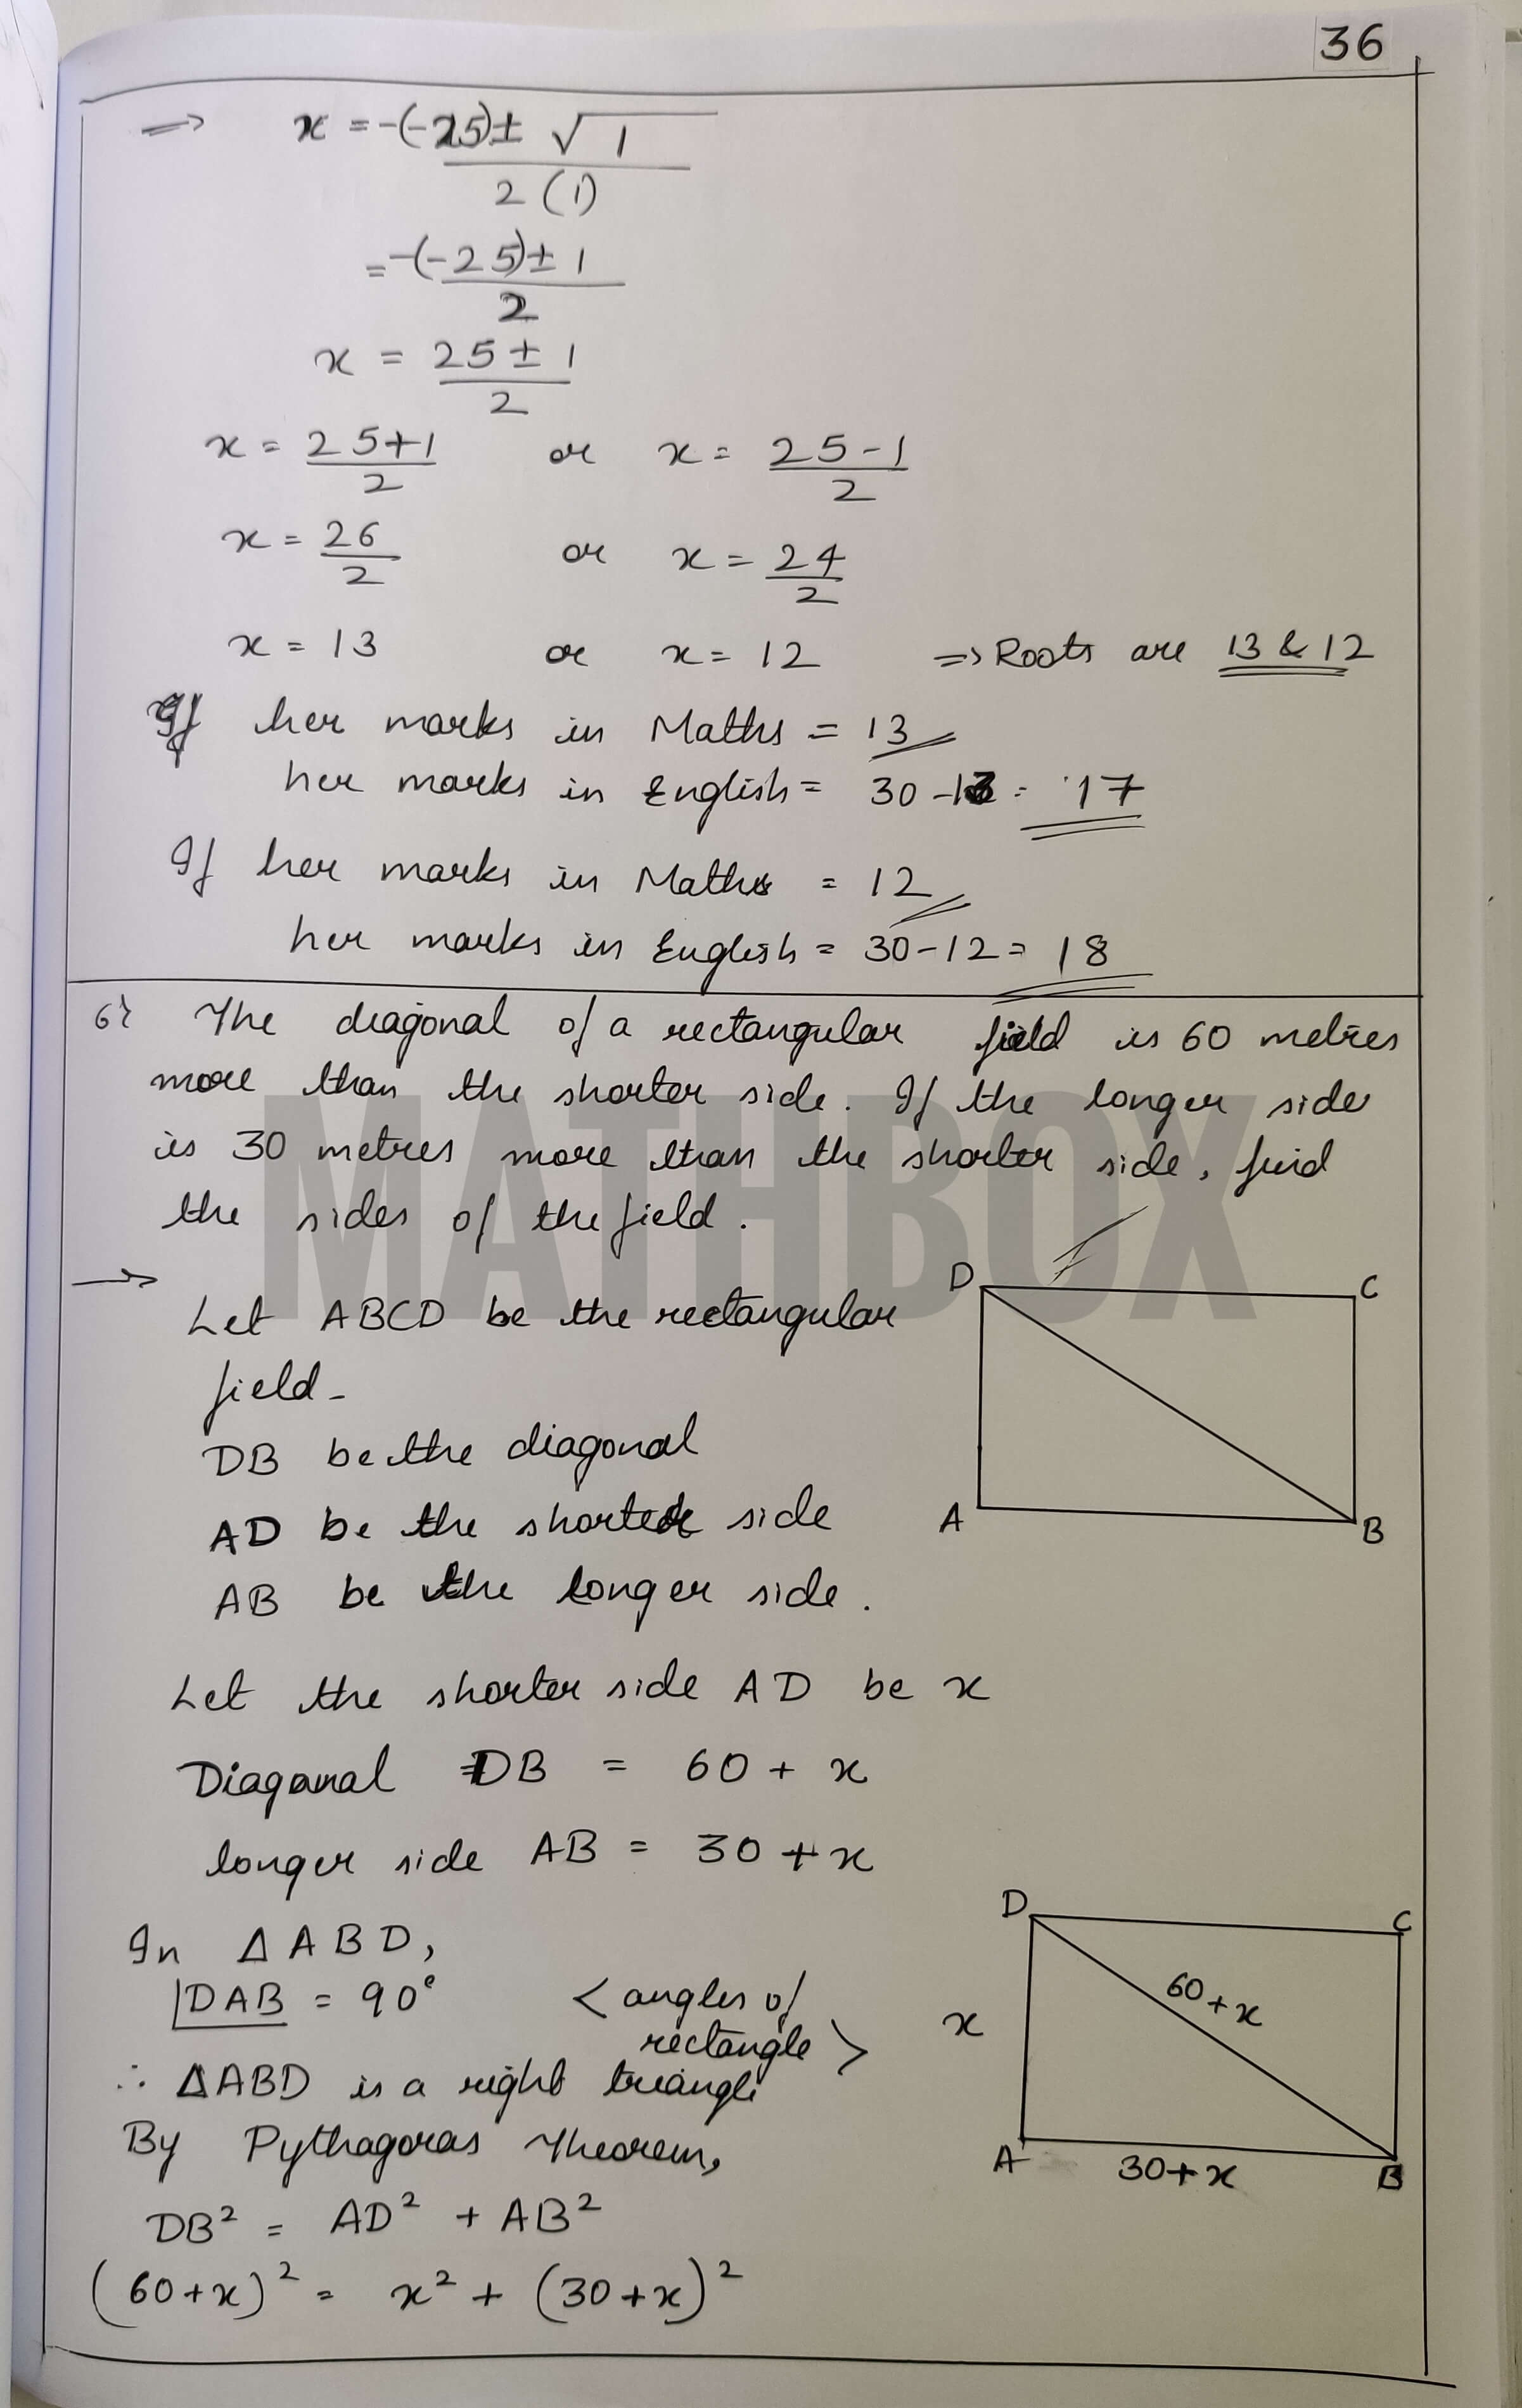 36
⇒ x = -(-25) ± √1
2(1)
= -(-25) ± 1
2
x = 25 ± 1
2
x = 25+1 or x = 25-1
2 2
x = 26 or x = 24
2 2
x = 13 or x = 12 ⇒ Roots are 13 & 12
If her marks in Maths = 13
her marks in English = 30-13 = 17
If her marks in Maths = 12
her marks in English = 30-12 = 18
6) The diagonal of a rectangular field is 60 metres
more than the shorter side. If the longer side
is 30 metres more than the shorter side, find
the sides of the field.
MATHBOX
→ Let ABCD be the rectangular
field-
DB be the diagonal
AD be the shorter side
AB be the longer side.
D C
A B
Let the shorter side AD be x
Diagonal DB = 60 + x
longer side AB = 30 + x
In △ABD,
∠DAB = 90° < angles of
rectangle >
∴ △ABD is a right triangle
By Pythagoras Theorem,
DB² = AD² + AB²
(60+x)² = x² + (30+x)²
D C
60+x
x
A 30+x B